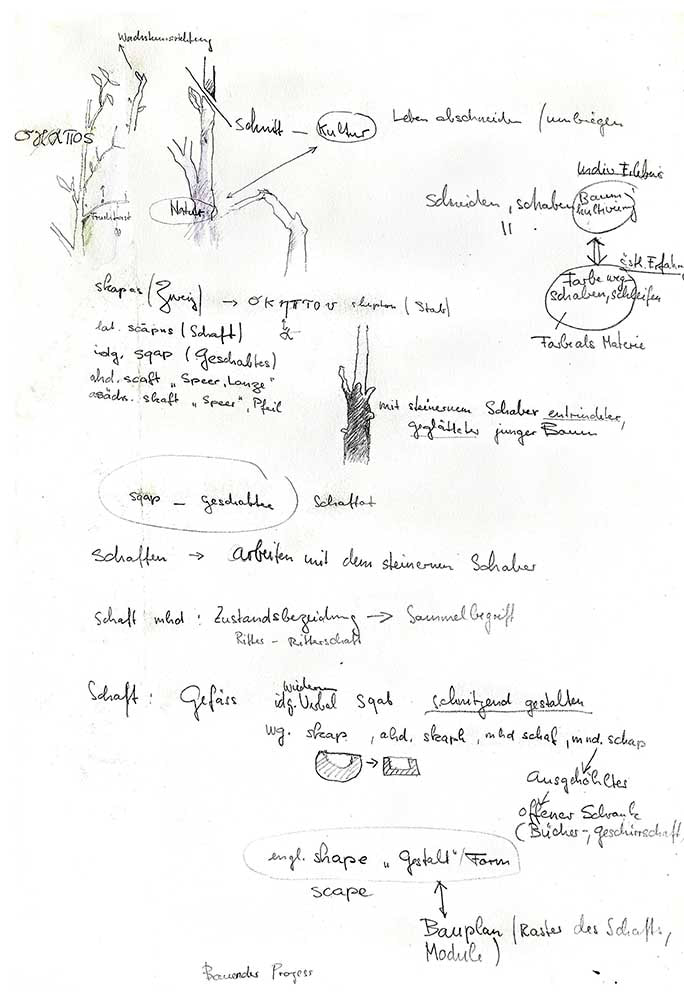 Wachstumsrichtung
σκαπος
Schnitt – Kultur
Leben abschneiden / umbiegen
Fruchtast
Natur
Indiv. Erlebnis
Schneiden, schaben
Baum-
kultivierung
=
Farbe weg
schaben, schleifen
Farbe als Materie
skapas (Zweig) → σκηπτον skepton (Stab)
α
lat. scāpus (Schaft)
idg. sqap (Geschabtes)
ahd. scaft „Speer, Lanze"
asächs. skaft „Speer", Pfeil
mit steinernem Schaber entrindeter,
geglätteter junger Baum
sqap – Geschabte Schaftat
Schaffen → arbeiten mit dem steinernen Schaber
Schaft mhd: Zustandsbezeichnung → Sammelbegriff
Ritter – Ritterschaft
wiederum
Schaft: Gefäss idg. Verbal sqab schnitzend gestalten
wg. skap, ahd. skaph, mhd schaf, mnd. schap
Ausgehöhltes
offener Schrank
(Bücher-, geschirrschaft,
engl. shape „Gestalt"/Form
scape
Bauplan (Raster des Schafts,
Module)
Bauender Prozess